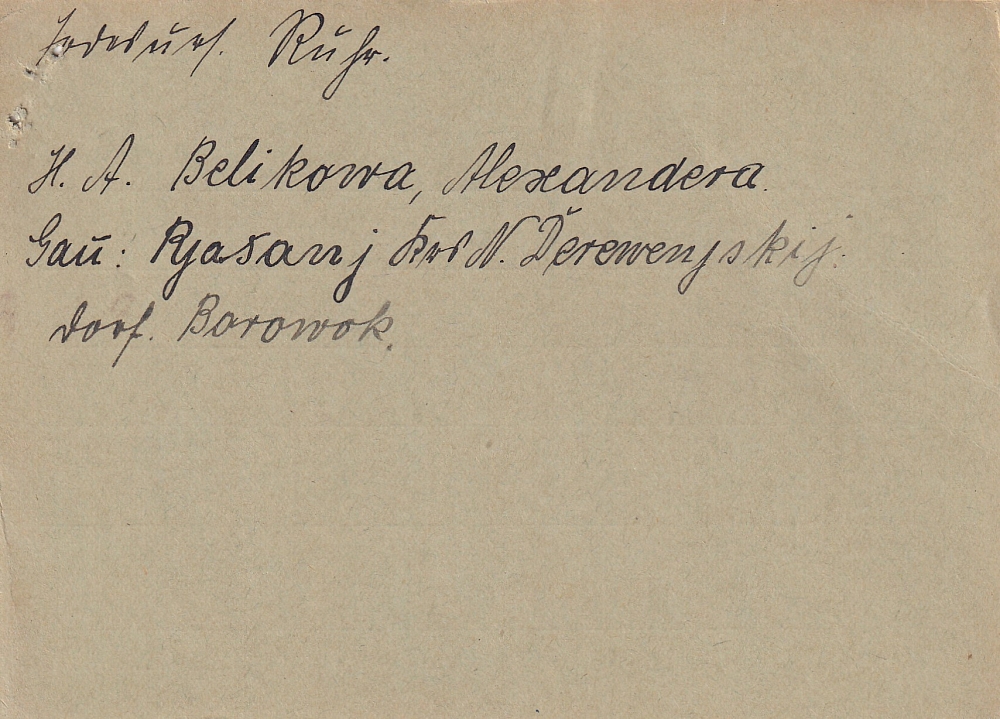 Todesurs. Ruhr.
H. A. Belikowa, Alexandera.
Gau: Rjasanj Krs N. Derewenjskij.
Dorf. Borowok.